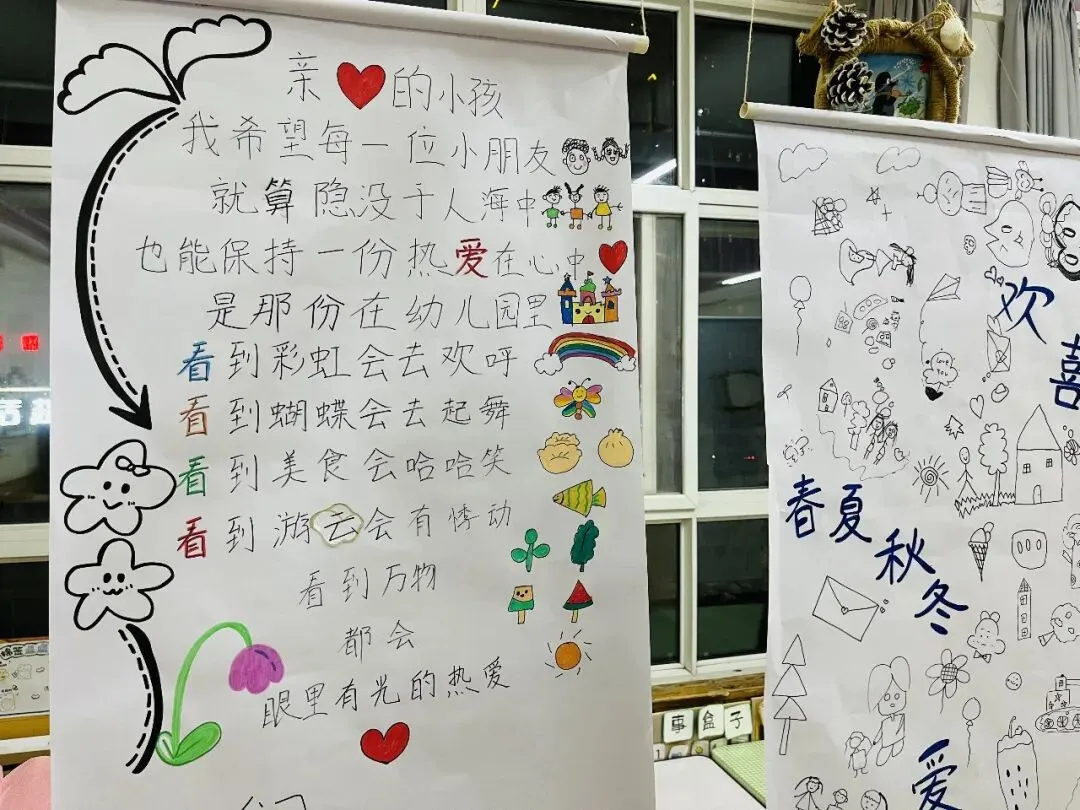 亲的小孩
我希望每一位小朋友
就算隐没于人海中
也能保持一份热爱在心中
是那份在幼儿园里
看到彩虹会去欢呼
看到蝴蝶会去起舞
看到美食会哈哈笑
看到游云会有悸动
看到万物
都会
眼里有光的热爱
欢
喜
春夏
秋
冬
爱
事盒子